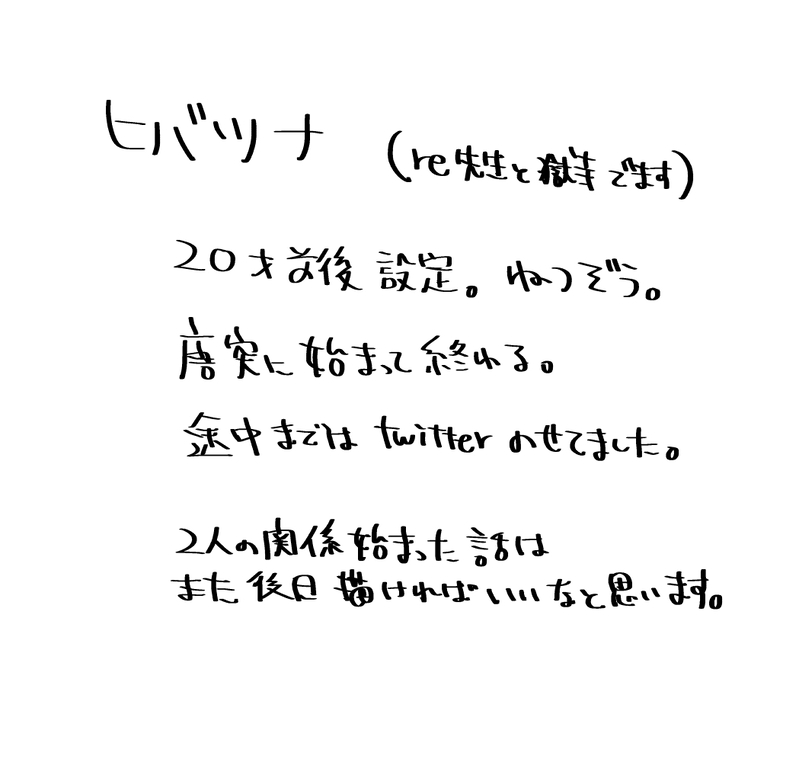 ヒバツナ (re先生と獄もでます)
20才前後設定。ねつぞう。
唐突に始まって終わる。
途中まではtwitterのせてました。
2人の関係始まった話は
また後日描ければいいなと思います。